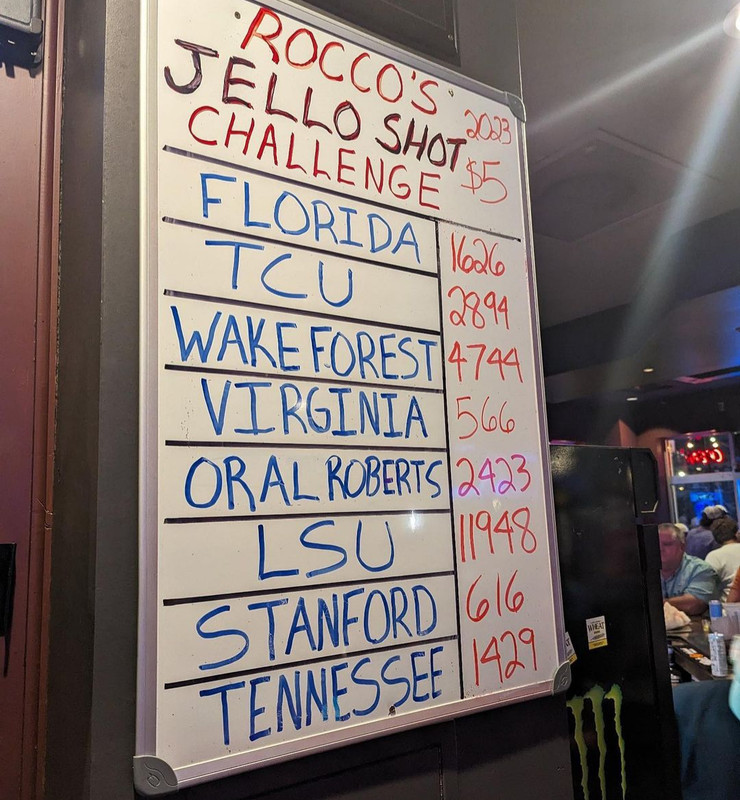 ROCCO'S
JELLO SHOT 2023
CHALLENGE $5
FLORIDA 1626
TCU 2894
WAKE FOREST 4744
VIRGINIA 566
ORAL ROBERTS 2423
LSU 11948
STANFORD 616
TENNESSEE 1429
WHEAT